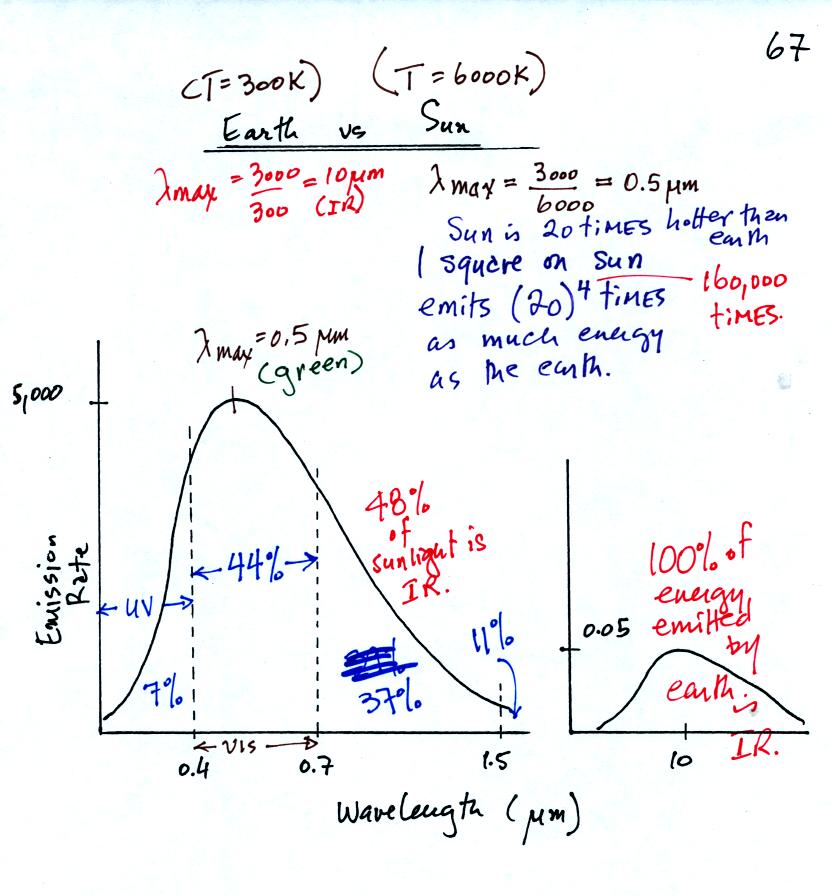 67
(T=300K) (T=6000K)
Earth vs Sun
λmax = 3000/300 = 10 μm
(IR)
λmax = 3000/6000 = 0.5 μm
Sun is 20 times hotter than
earth
1 square on Sun
emits (20)^4 times
as much energy
as the earth.
160,000
times.
λmax = 0.5 μm
(green)
5,000
Emission
Rate
← UV →
7%
← 44% →
48%
of
sunlight is
IR.
37%
11%
← VIS →
0.4
0.7
1.5
0.05
100% of
energy
emitted
by
earth is
IR.
10
Wavelength (μm)